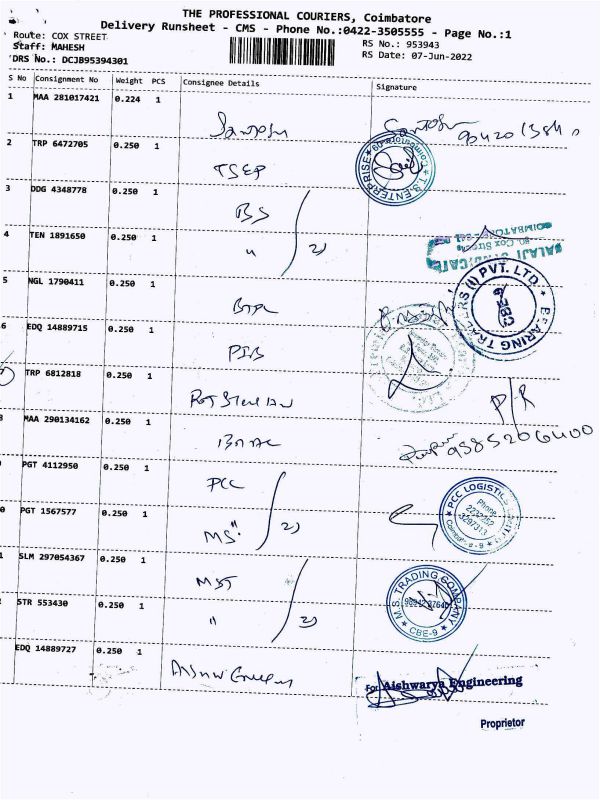 THE PROFESSIONAL COURIERS, Coimbatore
Delivery Runsheet - CMS - Phone No.:0422-3505555 - Page No.:1
Route: COX STREET
RS No.: 953943
Staff: MAHESH
RS Date: 07-Jun-2022
DRS No.: DCJB95394301
S No Consignment No Weight PCS Consignee Details Signature
1 MAA 281017421 0.224 1 Santosh Santosh
2 TRP 6472705 0.250 1 TSEP
T.S.ENTERPRISE
3 DDG 4348778 0.250 1 BS
4 TEN 1891650 0.250 1 " 2)
BALAJI SYNDICATE
80, Cox Street
COIMBATORE - 641
5 NGL 1790411 0.250 1 BTPL
BEARING TRADERS (I) PVT. LTD.
CBE
6 EDQ 14889715 0.250 1 PIB
7 TRP 6812818 0.250 1 P/R
8 MAA 290134162 0.250 1 9585206400
PGT 4112950 0.250 1 PCC
0 PGT 1567577 0.250 1 MS 2)
PCC LOGISTICS
Phone
2232352
3297313
Coimbatore-9
1 SLM 297054367 0.250 1 MST
STR 553430 0.250 1 " 2)
M.S. TRADING COMPANY
CBE-9
EDQ 14889727 0.250 1
For Aishwarya Engineering
Proprietor